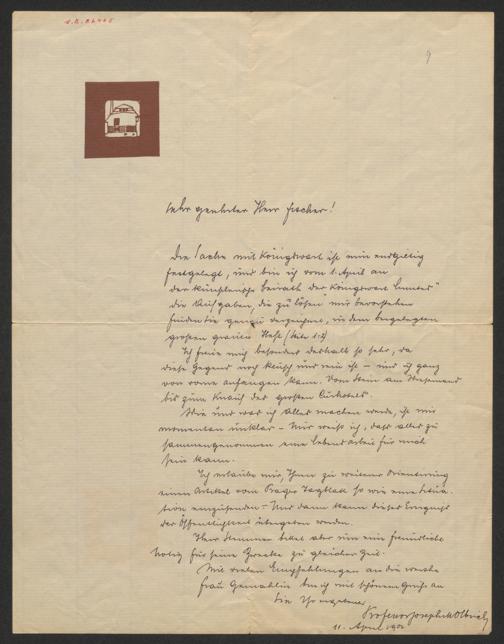 9
Sehr geehrter Herr Fischer!
Die Sache mit Königswart ist nun endgiltig
festgelegt, und bin ich vom 1. April an
der künstlerische Beirath der Königswart
die Aufgaben, die zu lösen mir bevorstehen
finden Sie genau verzeichnet, in dem beigelegten
großen grauen Heft
Ich freue mich besonders deshalb so sehr, da
diese Gegend noch keusch und rein ist – und ich ganz
von vorne anfangen kann. Vom Stein am
bis zum Knauf der großen
Wie und was ich alles machen werde, ist mir
momentan unklar – Nur weiß ich, daß alles zu
sammengenommen eine Lebensarbeit für mich
sein kann.
Ich erlaube mir, Ihnen zu weiterer Orientierung
einen Artikel vom Prager Tagblatt so wie eine Situa-
tion einzusenden – Nur dann kann dieses Ereigniss
der Öffentlichkeit übergeben werden.
Herr bittet aber um eine freundliche
Notiz für seine Zwecke zu gleicher Zeit.
Mit vielen Empfehlungen an die werthe
Frau Gemahlin bin ich mit schönem Gruße an
Sie Ihr ergebener
Professor Joseph M Olbrich
11. April